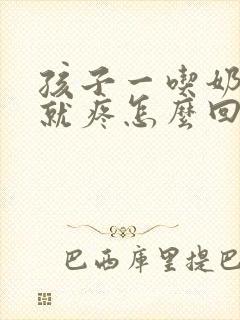 孩子一喫奶
就疼怎麼回
巴西庫里提巴